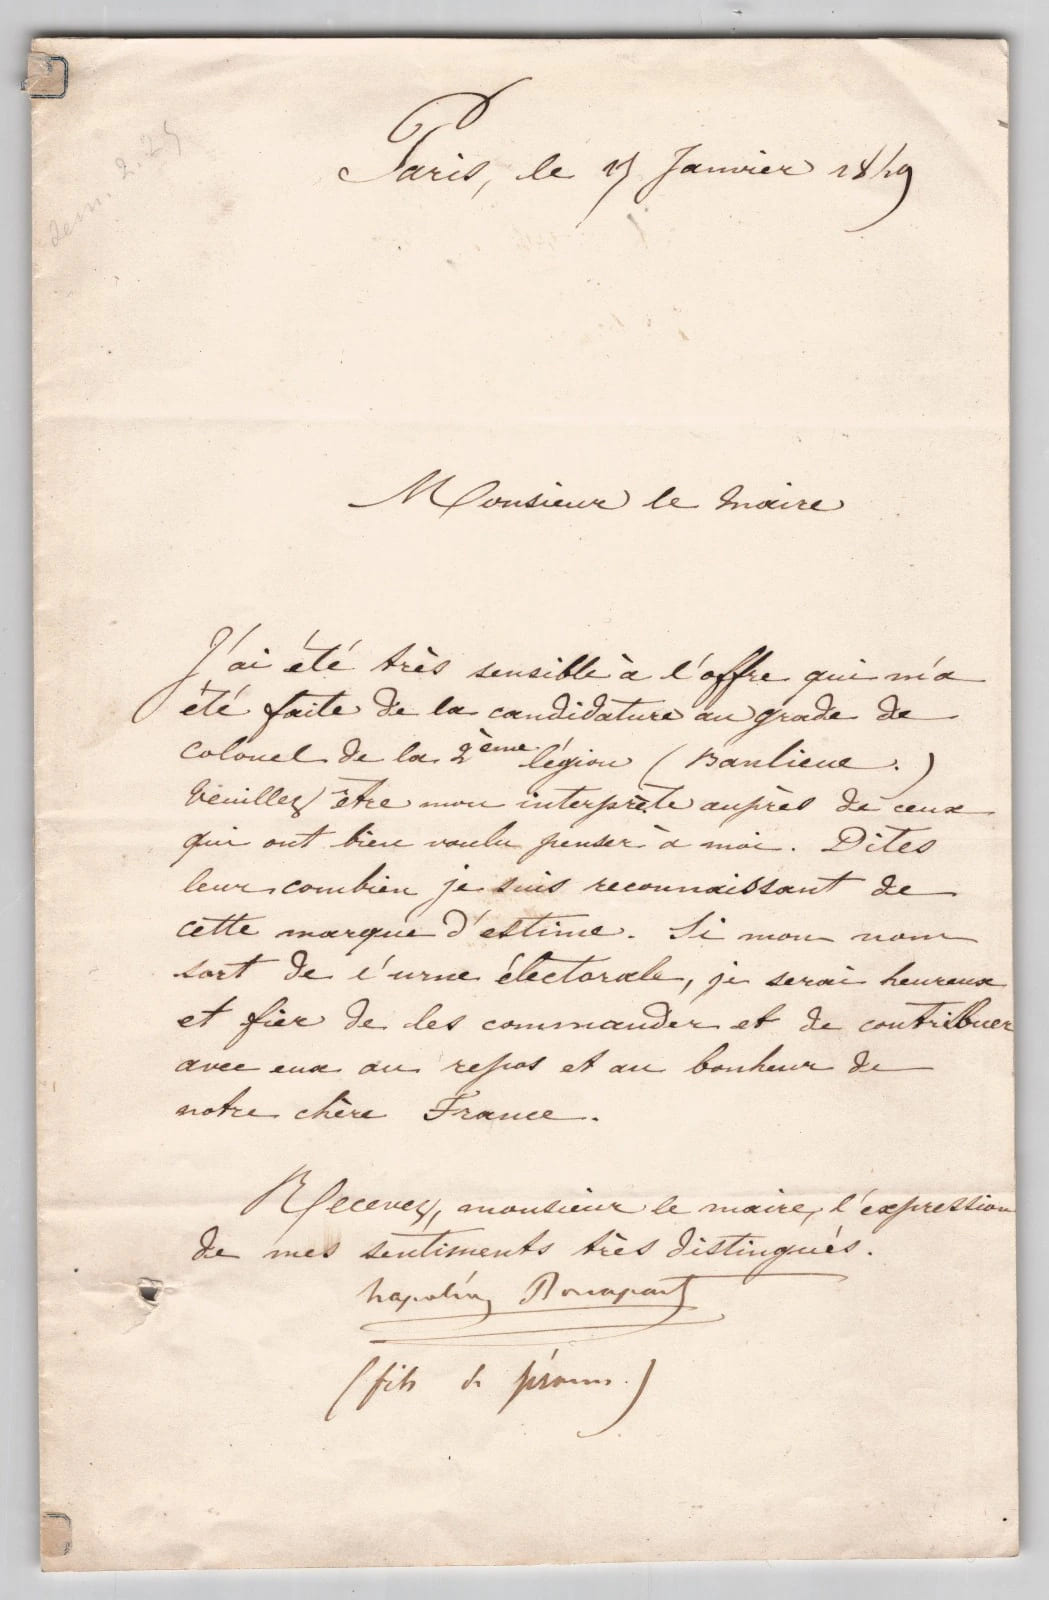 Paris, le 17 Janvier 1849
Monsieur le maire
J'ai été très sensible à l'offre qui m'a
été faite de la candidature au grade de
colonel de la 2ème légion (Banlieue.)
Veuillez être mon interprète auprès de ceux
qui ont bien voulu penser à moi. Dites
leur combien je suis reconnaissant de
cette marque d'estime. Si mon nom
sort de l'urne électorale, je serai heureux
et fier de les commander et de contribuer
avec eux au repos et au bonheur de
notre chère France.
Recevez, monsieur le maire, l'expression
de mes sentiments très distingués.
Napoléon Bonaparte
(fils de Jérôme.)